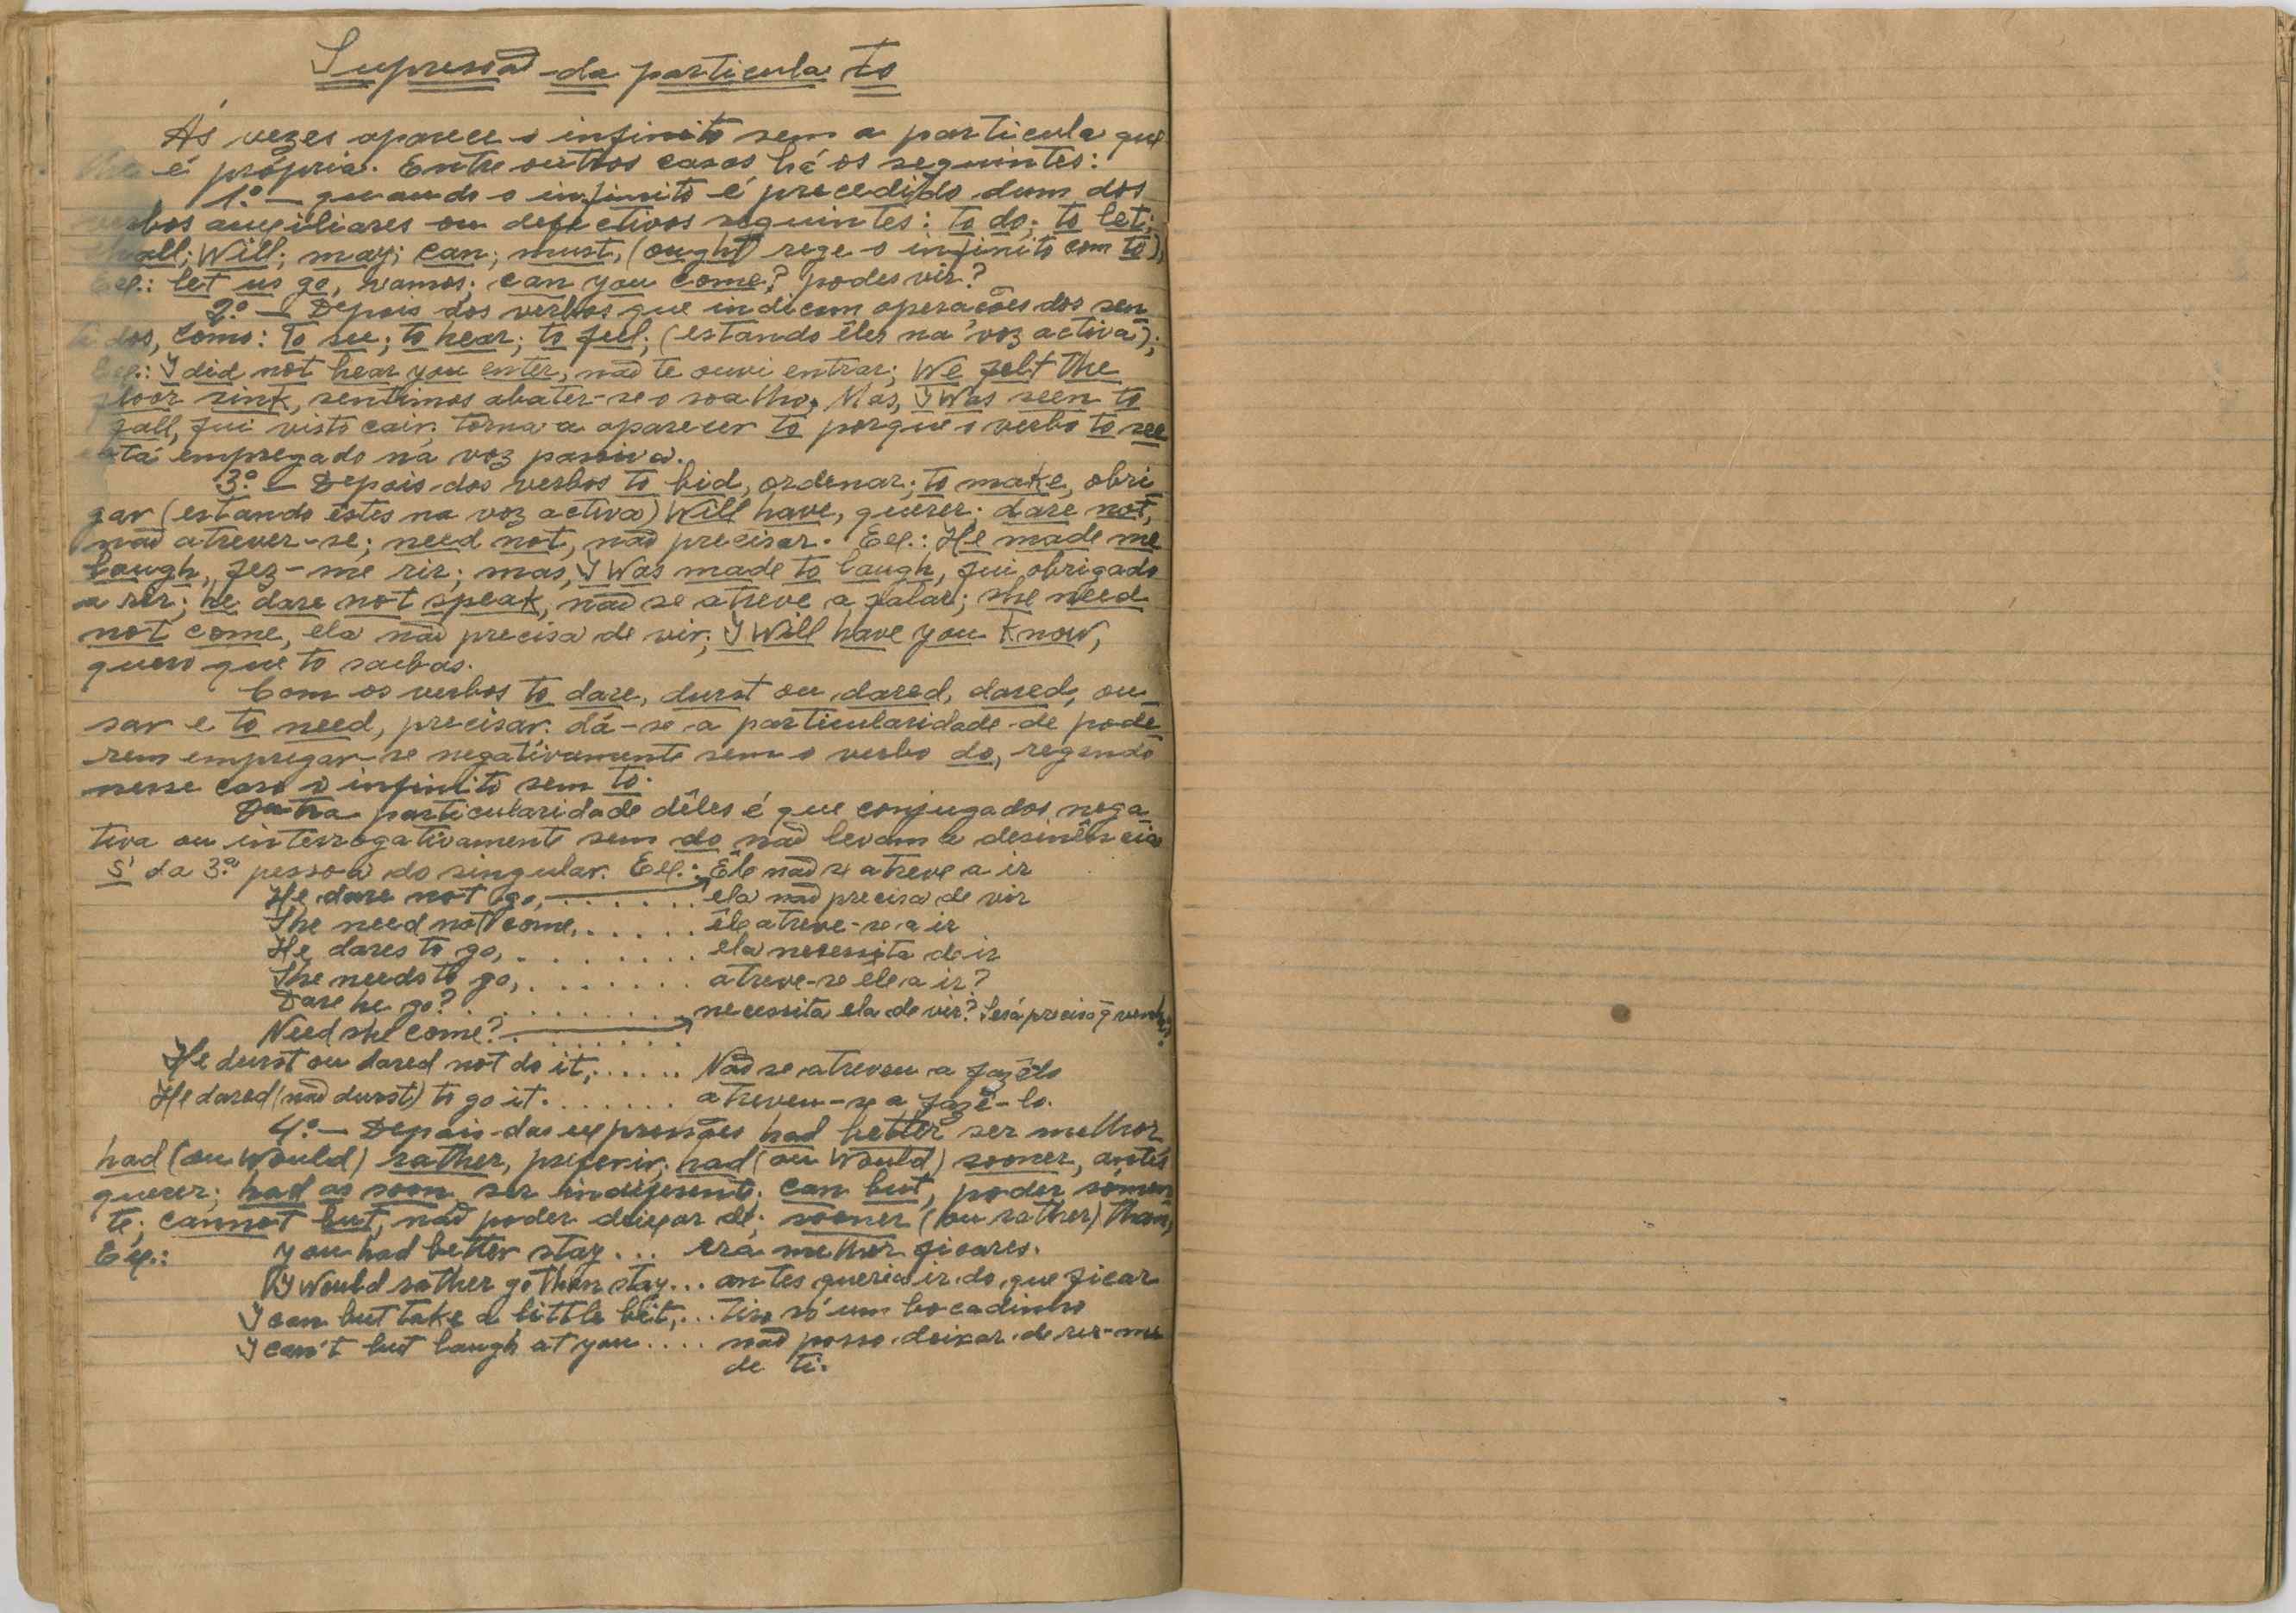 Supressão da particula to
Ás vezes aparece o infinito sem a particula que
lhe é própria. Entre outros casos há os seguintes:
1.º — quando o infinito é precedido dum dos
verbos auxiliares ou defectivos seguintes: to do; to let;
shall; Will; may; can; must, (ought rege o infinito com to),
Ex.: let us go, vamos; can you come? podes vir?
2.º — Depois dos verbos que indicam operações dos sen
tidos, como: To see; to hear; to feel; (estando êles na voz activa);
Ex.: I did not hear you enter, não te ouvi entrar; We felt the
floor sink, sentimos abater-se o soalho. Mas, I Was seen to
fall, fui visto cair, torna a aparecer to porque o verbo to see
está empregado na voz passiva.
3.º — Depois dos verbos to bid, ordenar; to make, obri
gar (estando êstes na voz activa) Will have, querer; dare not,
não atrever-se; need not, não precisar. Ex.: He made me
laugh, fez-me rir; mas, I Was made to laugh, fui obrigado
a rir; he dare not speak, não se atreve a falar; she need
not come, ela não precisa de vir; I Will have you know,
quero que to saibas.
Com os verbos to dare, durst ou dared, dared, ou
sar e to need, precisar. dá-se a particularidade de pode
rem empregar-se negativamente sem o verbo do, regendo
nesse caso o infinito sem to.
Outra particularidade dêles é que conjugados nega
tiva ou interrogativamente sem do não levam a desinência
S da 3.ª pessoa do singular. Ex.: Êle não se atreve a ir
He dare not go, ....... ela não precisa de vir
She need not come, ...... êle atreve-se a ir
He dares to go, ........ ela necessita de ir
She needs to go, ....... atreve-se ele a ir?
Dare he go? .......... necessita ela de vir? Será preciso q̃ venha?
Need she come? .......
He durst ou dared not do it, ..... Não se atreveu a fazê-lo
He dared (não durst) to go it. ...... atreveu-se a fazê-lo.
4.º — Depois das expressões had better ser melhor
had (ou Would) rather, preferir; had (ou Would) sooner, antes
querer; had as soon ser indiferente; can but, poder sómen
te; cannot but, não poder deixar de; sooner (ou rather) than,
Ex.: you had better stay ... era melhor ficares.
I Would rather go than stay... antes queria ir do que ficar
I can but take a little bit, ... tiro só um bocadinho
I can't but laugh at you .... não posso deixar de rir-me
de ti.